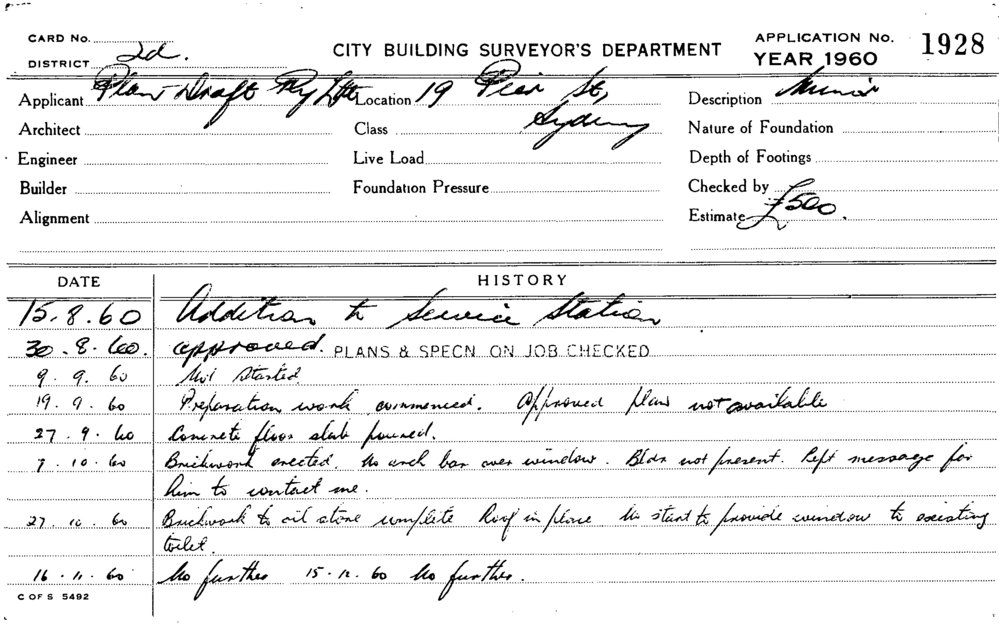 CARD No.
DISTRICT 2d.
CITY BUILDING SURVEYOR'S DEPARTMENT
APPLICATION No. 1928
YEAR 1960
Applicant Plan Draft Pty Ltd Location 19 Pier St, Description Minor
Architect Class Sydney Nature of Foundation
Engineer Live Load Depth of Footings
Builder Foundation Pressure Checked by
Alignment Estimate £500.
DATE HISTORY
15.8.60 Addition to Service Station
30.8.60. approved. PLANS & SPECN ON JOB CHECKED
9.9.60 Not started
19.9.60 Preparation work commenced. Approved plans not available
27.9.60 Concrete floor slab poured.
7.10.60 Brickwork erected. No arch bar over window. Bldr not present. Left message for
him to contact me.
27.10.60 Brickwork to oil store complete Roof in place No start to provide window to existing
toilet.
16.11.60 No further 15.12.60 No further.
C OF S 5492